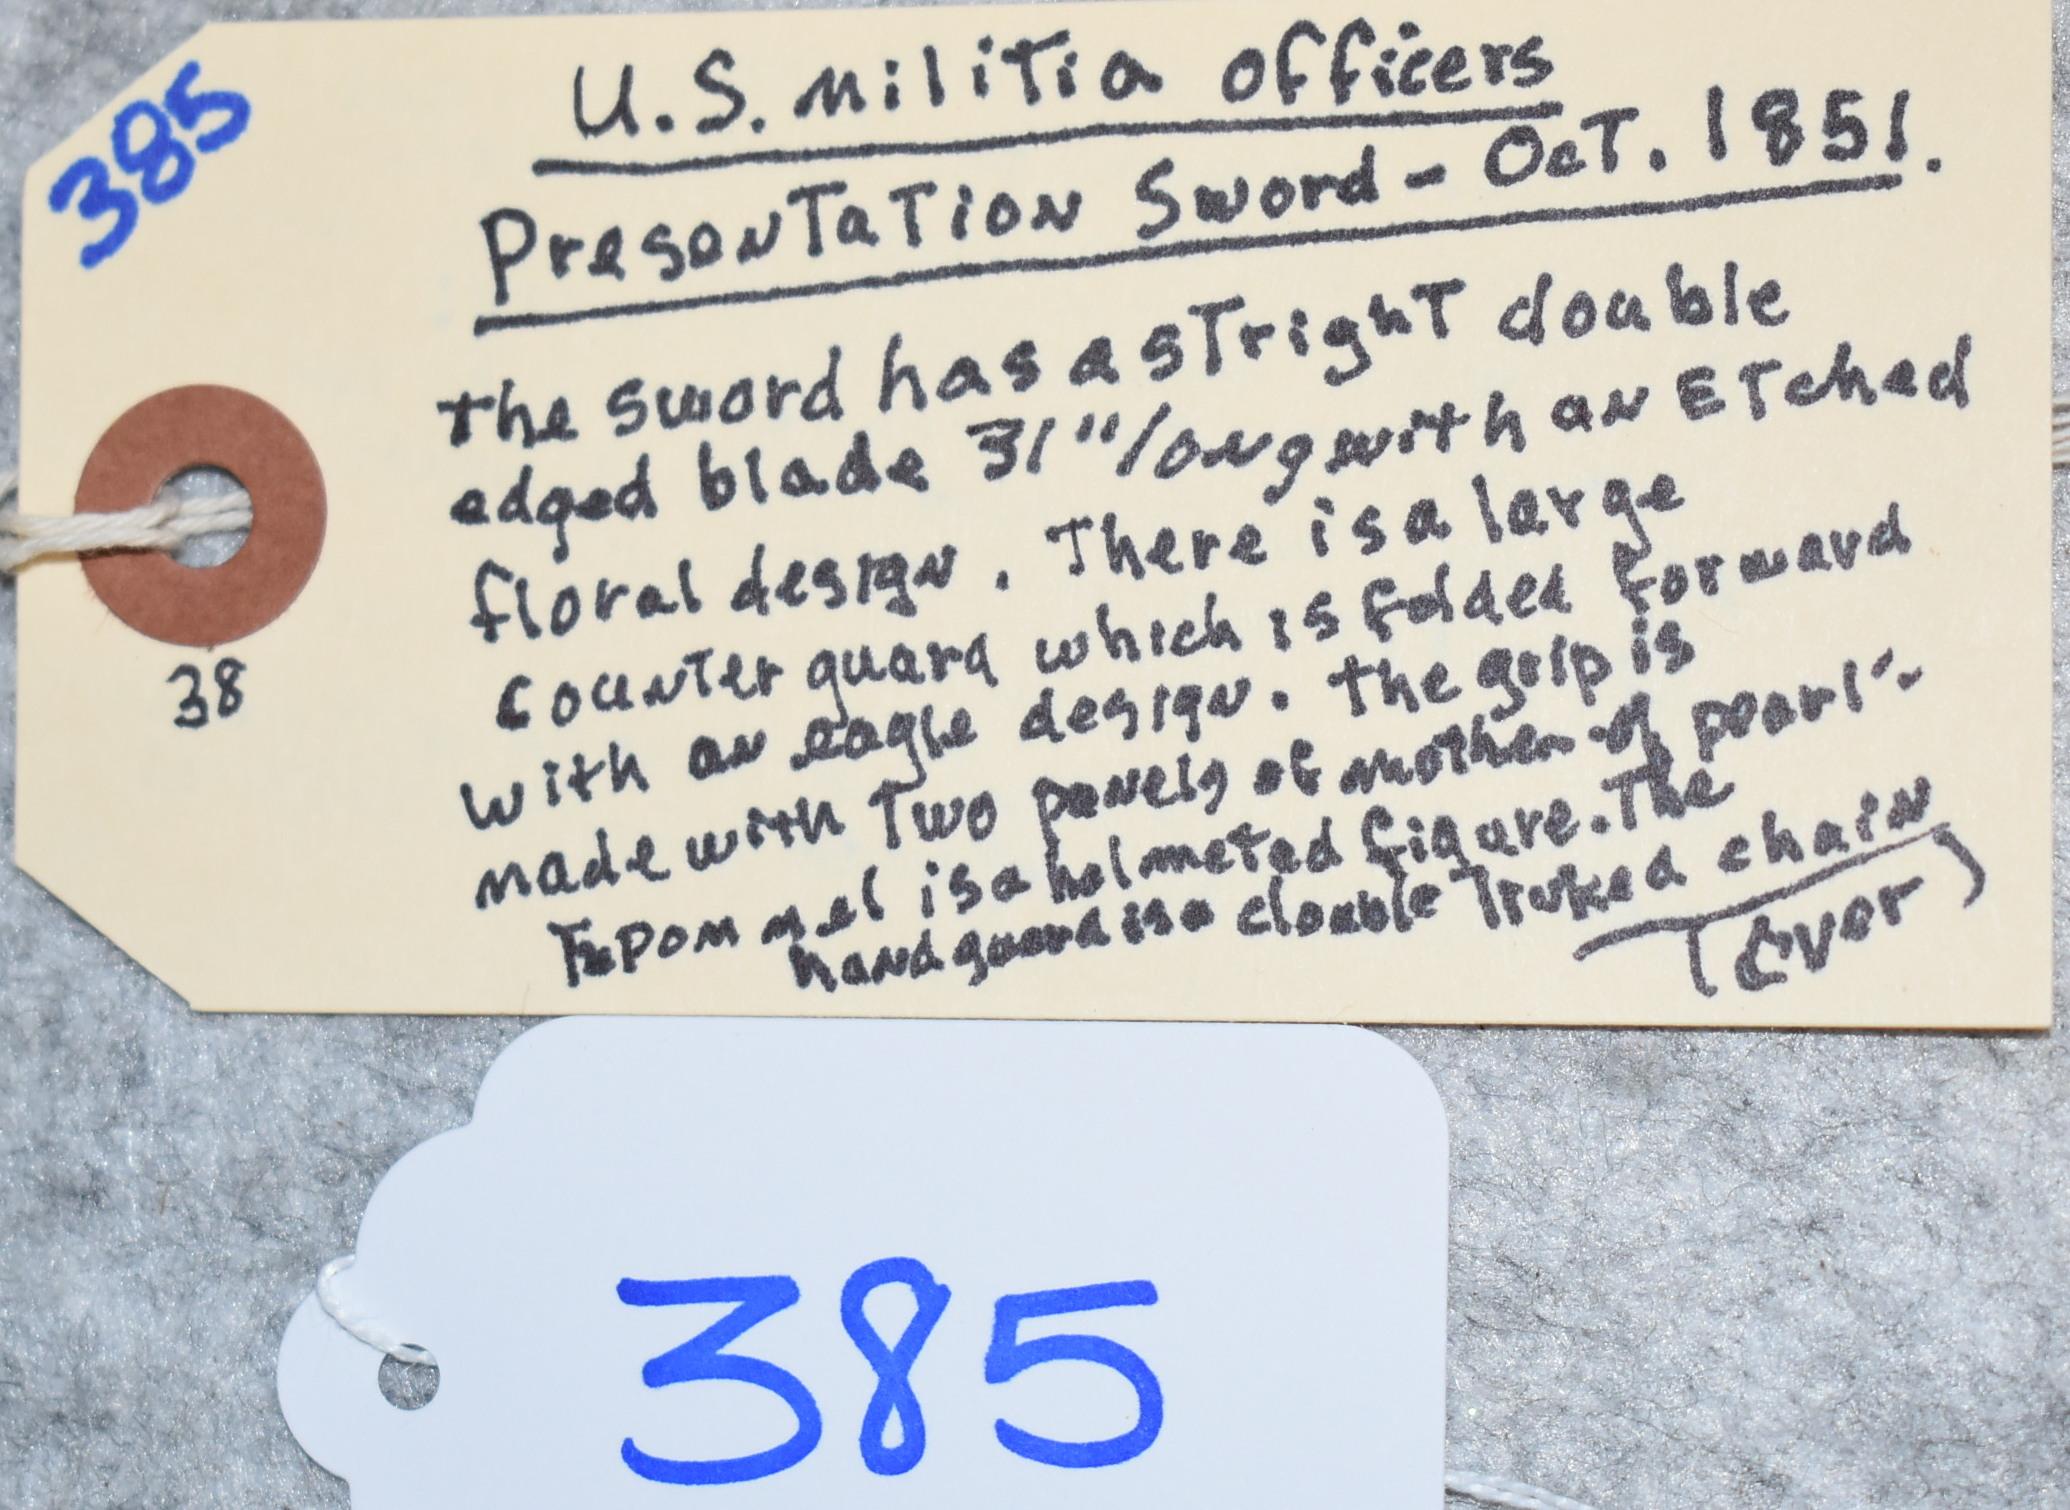 385
U.S. militia officers
Presentation Sword - Oct. 1851.
the sword has a stright double
edged blade 31" long with an Etched
floral design. There is a large
counter guard which is folded forward
with an eagle design. the grip is
made with Two panels of mother-of pearl"-
The pommel is a helmeted figure. The
hand guard is a double linked chain
(over)
38
385